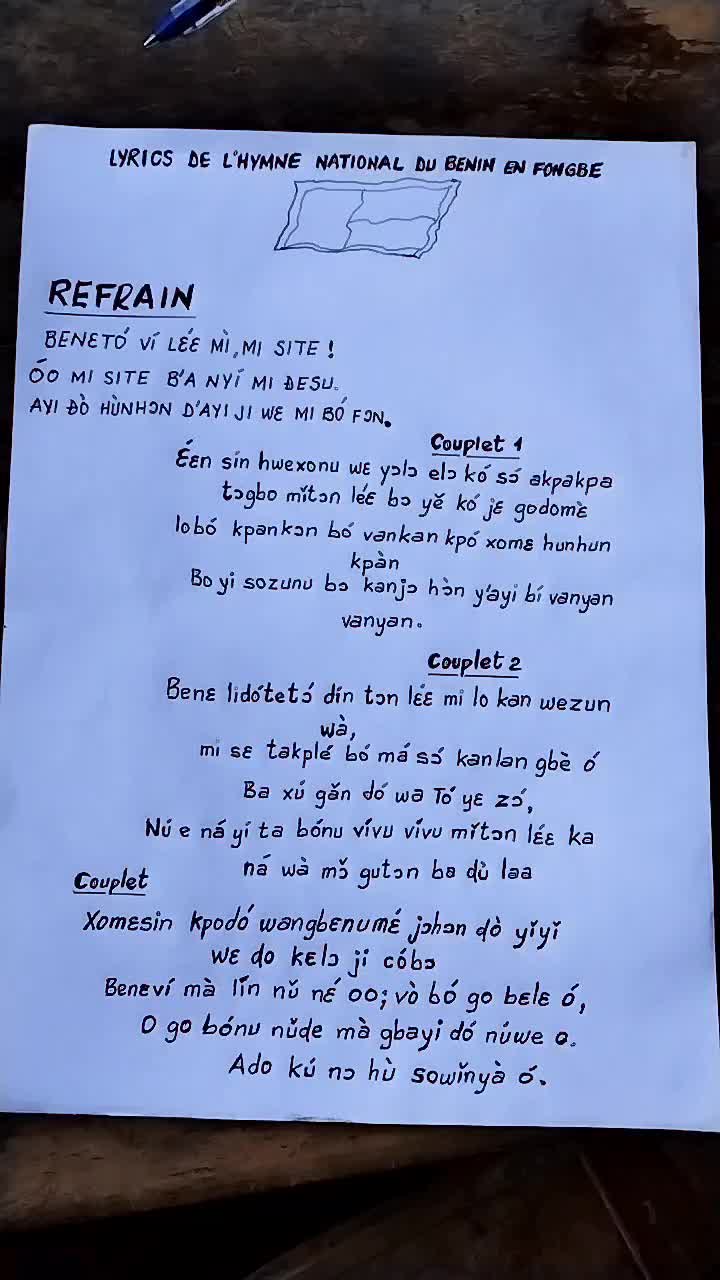 LYRICS DE L'HYMNE NATIONAL DU BENIN EN FONGBE
REFRAIN
BENƐTÓ VÍ LƐ́Ɛ MÌ, MI SITE !
ÓO MI SITE B'A NYÍ MI ÐESU.
AYI ÐÒ HÙNHƆN D'AYI JI WƐ MI BÓ FƆN.
Couplet 1
Ɛ́ɛn sín hwexonu wɛ yɔlɔ elɔ kó sɔ́ akpakpa
tɔgbo mǐtɔn lɛ́ɛ bɔ yě kó jɛ godomɛ̀
lobó kpankɔn bó vankan kpó xomɛ hunhun
kpàn
Bo yi sozunu bɔ kanjɔ hɔ̀n y'ayi bí vanyan
vanyan.
Couplet 2
Benɛ lidótetɔ́ dín tɔn lɛ́ɛ mi lo kan wezun
wà,
mi sɛ takplé bó má sɔ́ kanlan gbè ó
Ba xú gǎn dó wa Tó yɛ zɔ́,
Nú e ná yí ta bónu vívu vívu mǐtɔn lɛ́ɛ ka
ná wà mɔ̌ gutɔn ba dù laa
Couplet
Xomɛsin kpodó wangbenumɛ́ jɔhɔn dò yǐyǐ
wɛ do kɛlɔ ji cóbɔ
Benɛví mà lǐn nǔ né oo; vò bó go bɛlɛ ó,
O go bónu nǔde mà gbayi dó núwe o.
Ado kú nɔ hù sowǐnyà ó.